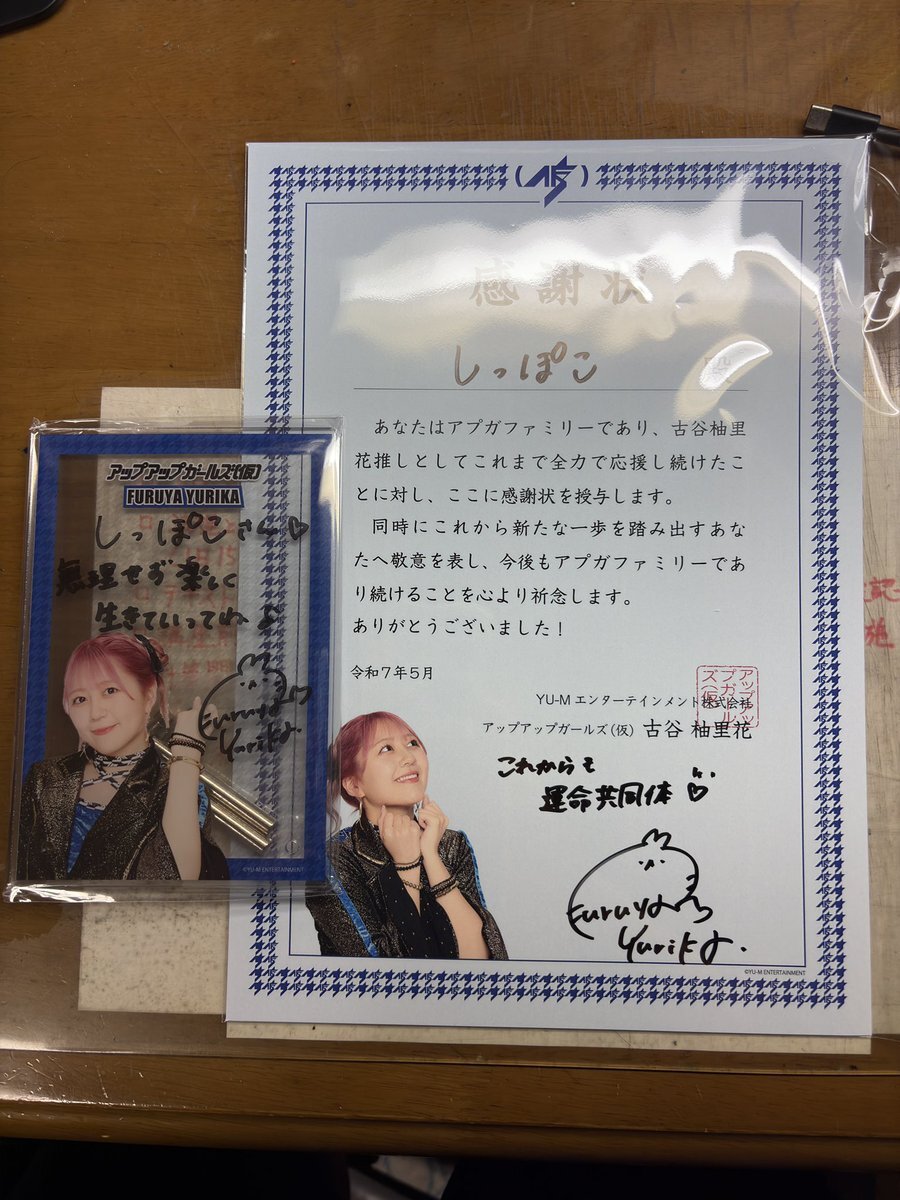 アップアップガールズ(仮)
FURUYA YURIKA
しっぽこさん♡
無理せず楽しく
生きていってね♪
Furuya
Yurika.
©YU-M ENTERTAINMENT
感謝状
しっぽこ
あなたはアプガファミリーであり、古谷柚里
花推しとしてこれまで全力で応援し続けたこ
とに対し、ここに感謝状を授与します。
同時にこれから新たな一歩を踏み出すあな
たへ敬意を表し、今後もアプガファミリーであ
り続けることを心より祈念します。
ありがとうございました！
令和7年5月
YU-Mエンターテインメント株式会社
アップアップガールズ(仮) 古谷 柚里花
アップアップガールズ(仮)
これからも
運命共同体♡
Furuya
Yurika.
©YU-M ENTERTAINMENT